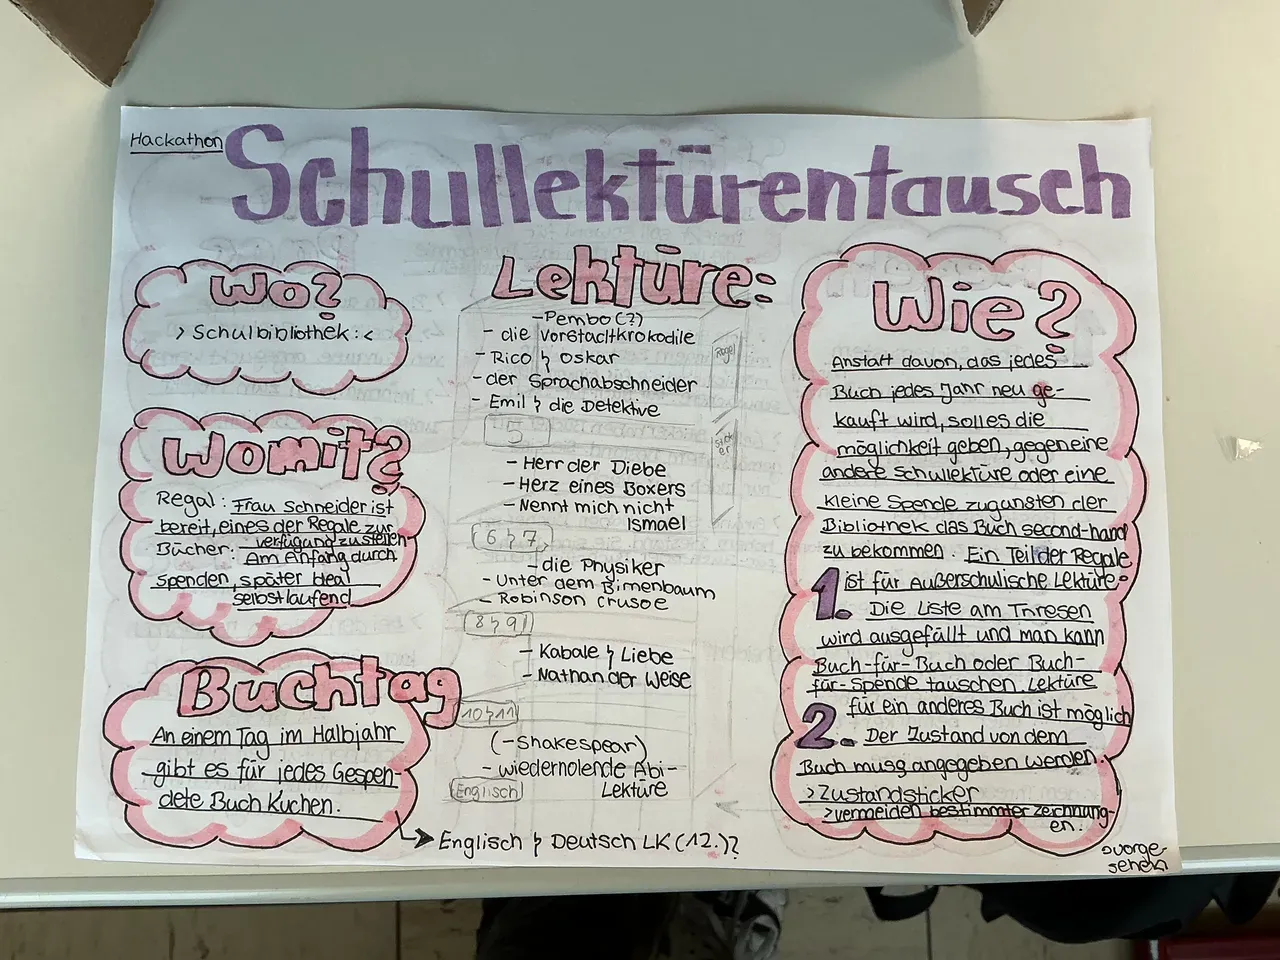 Hackathon
Schullektürentausch
Wo?
> Schulbibliothek: <
Womit?
Regal: Frau Schneider ist
bereit, eines der Regale zur
verfügung zu stellen
Bücher: Am Anfang durch
spenden, später Ideal
selbstlaufend
Buchtag
An einem Tag im Halbjahr
gibt es für jedes Gespen-
dete Buch Kuchen.
Lektüre:
- Pembo (?)
- die Vorstadtkrokodile
- Rico & Oskar
- der Sprachabschneider
- Emil & die Detektive
5
- Herr der Diebe
- Herz eines Boxers
- Nennt mich nicht
Ismael
6 & 7
- die Physiker
- Unter dem Birnenbaum
- Robinson Crusoe
8 & 9
- Kabale & Liebe
- Nathan der Weise
10 & 11
(- Shakespear)
- wiederholende Abi-
Lektüre
Englisch
Englisch & Deutsch LK (12.)?
Regal
Stick
er
Wie?
Anstatt davon, das jedes
Buch jedes Jahr neu ge-
kauft wird, soll es die
möglichkeit geben, gegen eine
andere Schullektüre oder eine
kleine Spende zugunsten der
Bibliothek das Buch second-hand
zu bekommen. Ein Teil der Regale
ist für Außerschulische Lektüre.
1. Die Liste am Thresen
wird ausgefüllt und man kann
Buch-für-Buch oder Buch-
für-Spende tauschen. Lektüre
für ein anderes Buch ist möglich
2. Der Zustand von dem
Buch muss angegeben werden.
> Zustandsticker
> vermeiden bestimmter zeichnung-
en.
vorge-
sehen